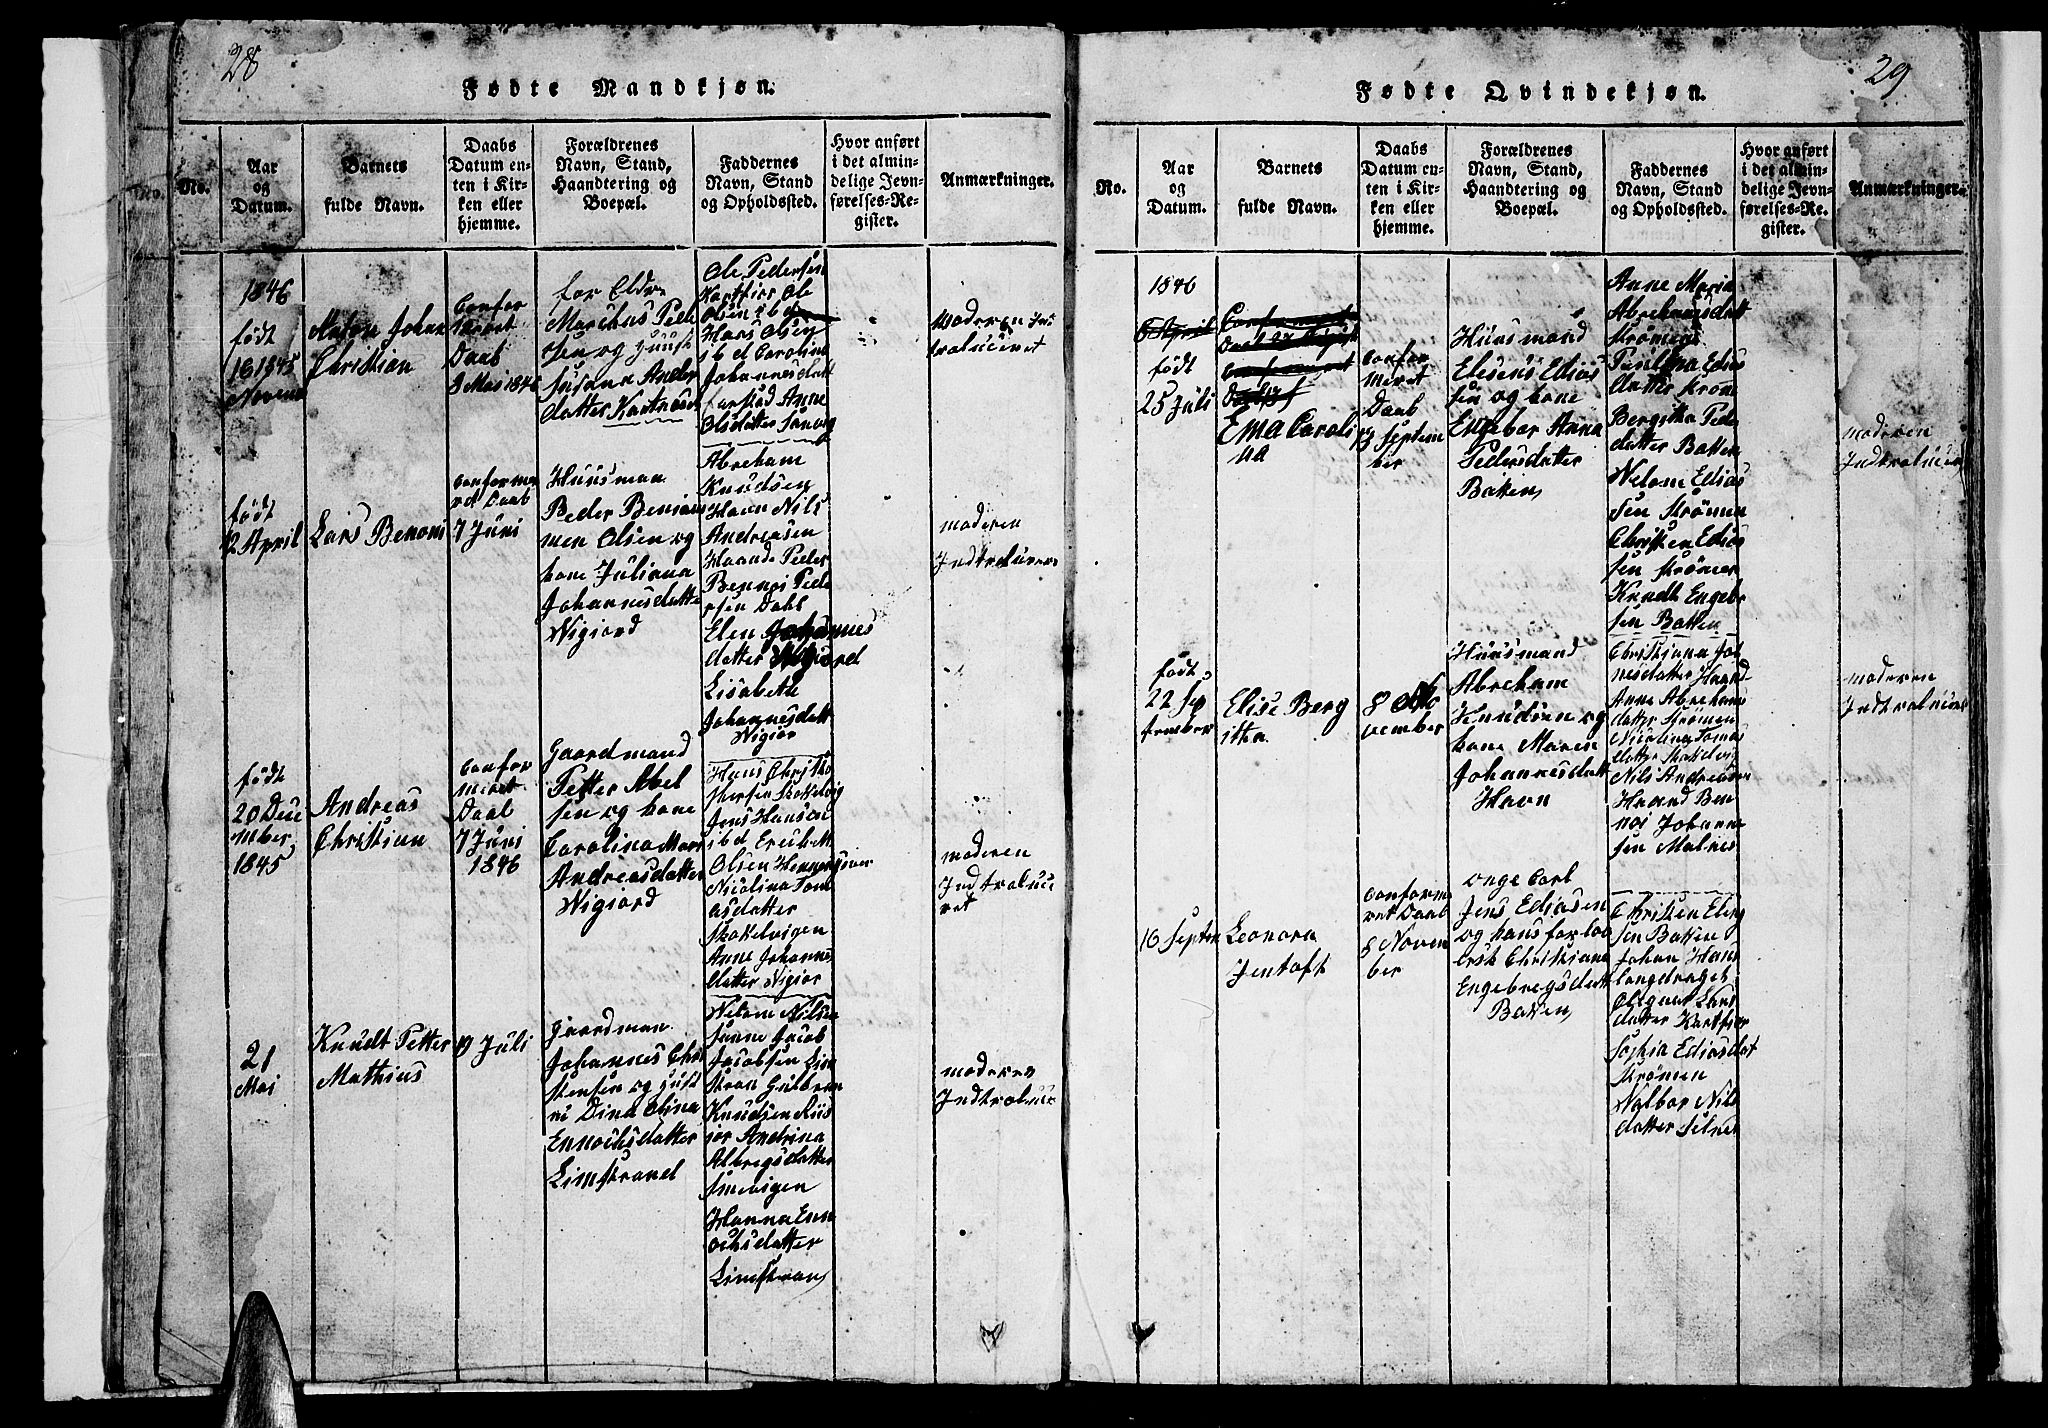 28
Fødte Mandkjøn.
No.
Aar
og
Datum.
Barnets
fulde Navn.
Daabs
Datum en-
ten i Kir-
ken eller
hjemme.
Forældrenes
Navn, Stand,
Haandtering og
Boepæl.
Faddernes
Navn, Stand
og Opholdssted.
Hvor anført
i det almin-
delige Jevn-
førelses-Re-
gister.
Anmærkninger.
1846
født
16 1845
Novem
Anton Johan
Christian
Confor
Daab
3 Mai 1846
for Eldr
Marchus Peder
sen og
Susana Ander
datter
Ole Pedersen
Ole
Olsen ibd
Hans Olsen
ibd Carolina
Johannesdatt
Anne
Olsdatter
Moderen In
troluceret
født
12 April
Lars Benoni
Confirme
ret Daab
7 Juni
Huusman
Peder Benjam
men Olsen og
kone Juliana
Johannesdatte
Nigiord
Abreham
Knudsen
Havn Nils
Andreasen
Haand Peder
Bennoi Pede
rsen Dahl
Elen Johannes
datter Nigiord
Lisabeth
Johannesdatt
Nigior
moderen
Indtrolucere
født
20 Dece
mber
1845
Andreas
Christian
Confor
meret
Daab
7 Juni
1846
Gaardmand
Petter Abel
sen og kone
Carolina Mari
Andreasdatter
Nigiord
Hans Christo
phersen Stokelvig
Jens Hanson
ibd
Olsen
Nicolina Tom
asdatter
Stokelvigen
Anne Johannes
datter Nigior
moderen
Indtroluce
ret
21
Mai
Knudt Petter
Mathius
19 Juli
Gaardman
Johannes Chri
stensen og Hust
ru Dina Olina
Ennochsdatter
Limstrand
Welom Nilsen
Jacob
Jacobsen Lim
stran
Knudsen
Andrina
Albregsdatter
Smevigen
Hanna Enn
ochsdatter
Limstran
moderen
Indtroluce
29
Fødte Qvindekjøn.
No.
Aar
og
Datum.
Barnets
fulde Navn.
Daabs
Datum en-
ten i Kir-
ken eller
hjemme.
Forældrenes
Navn, Stand,
Haandtering og
Boepæl.
Faddernes
Navn, Stand
og Opholdssted.
Hvor anført
i det almin-
delige Jevn-
førelses-Re-
gister.
Anmærkninger.
1846
født
25 Juli
Ema Caroli
na
Confor
meret
Daab
13 Septem
ber
Huusmand
Elesens Edias
sen og kone
Engebor Anna
Pedersdatter
Batten
Anne Maria
Abrehamsdatt
Strømen
Paulina Edias
datter Strøme
Bergitha Peder
datter Batten
Welom Edias
sen Strømen
Christen Edias
sen Strømen
Knudt Engebr
sen Batten
moderen
Indtroluceri
født
22 Sep
tember
Elise Berg
itha
8
vember
Huusmand
Abreham
Knudsen og
kone Maren
Johannesdatt
Havn
Christjana Joh
nesdatter Haand
Anne Abreham
datter Strømen
Nicolina Tomas
datter Stokelvig
Nils Andreasen
Haand Ben
noi Johanne
sen Malnes
moderen
Indtroluceri
16 Septem
Leonora
Jentoft
Conform
ret Daab
8 Novem
ber
onge Carl
Jens Ediasen
og hans forlov
erske Christjane
Engebregsdatt
Batten
Christen Eleg
sen Batten
Johan Hans
Langdraget
Olegna Lars
datter
Sophia Ediasdat
Strømen
Walbor Nils
datter Selnes